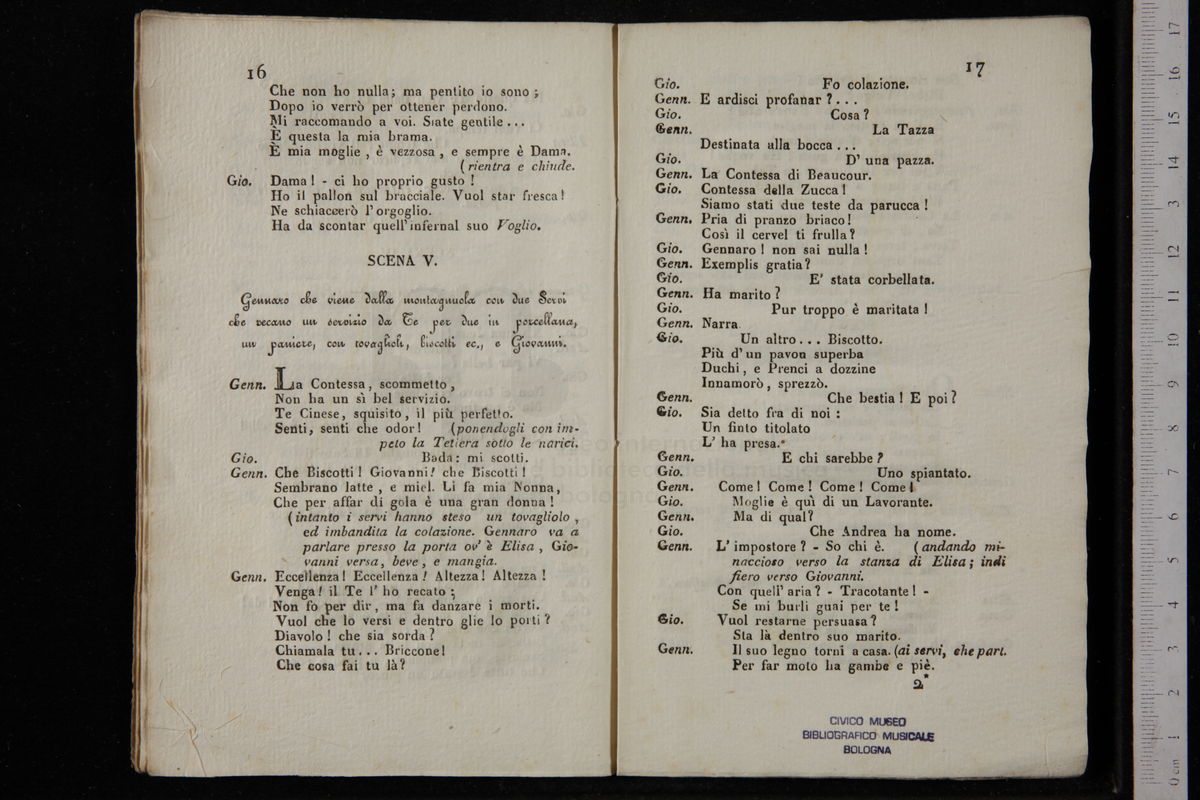 16
Che non ho nulla; ma pentito io sono ;
Dopo io verrò per ottener perdono.
Mi raccomando a voi. Siate gentile ...
È questa la mia brama.
È mia moglie , è vezzosa , e sempre è Dama.
(rientra e chiude.
Gio. Dama ! - ci ho proprio gusto !
Ho il pallon sul bracciale. Vuol star fresca !
Ne schiaccerò l' orgoglio.
Ha da scontar quell' infernal suo Voglio.
SCENA V.
Gennaro che viene dalla montagnuola con due Servi
che recano un servizio da Te per due in porcellana,
un paniere, con tovaglioli, biscotti ec., e Giovanni.
Genn. La Contessa , scommetto ,
Non ha un sì bel servizio.
Te Cinese, squisito , il più perfetto.
Senti, senti che odor ! (ponendogli con im-
peto la Tetiera sotto le narici.
Gio. Bada: mi scotti.
Genn. Che Biscotti ! Giovanni! che Biscotti !
Sembrano latte , e miel. Li fa mia Nonna,
Che per affar di gola è una gran donna !
(intanto i servi hanno steso un tovagliolo ,
ed imbandita la colazione. Gennaro va a
parlare presso la porta ov' è Elisa , Gio-
vanni versa, beve , e mangia.
Genn. Eccellenza ! Eccellenza ! Altezza ! Altezza !
Venga! il Te l' ho recato ;
Non fo per dir, ma fa danzare i morti.
Vuol che lo versi e dentro glie lo porti ?
Diavolo ! che sia sorda ?
Chiamala tu... Briccone!
Che cosa fai tu là?
17
Gio. Fo colazione.
Genn. E ardisci profanar ? ...
Gio. Cosa ?
Genn. La Tazza
Destinata alla bocca ...
Gio. D' una pazza.
Genn. La Contessa di Beaucour.
Gio. Contessa della Zucca !
Siamo stati due teste da parucca !
Genn. Pria di pranzo briaco !
Così il cervel ti frulla?
Gio. Gennaro ! non sai nulla !
Genn. Exemplis gratia?
Gio. E' stata corbellata.
Genn. Ha marito ?
Gio. Pur troppo è maritata !
Genn. Narra
Gio. Un altro... Biscotto.
Più d' un pavon superba
Duchi , e Prenci a dozzine
Innamorò , sprezzò.
Genn. Che bestia ! E poi ?
Gio. Sia detto fra di noi :
Un finto titolato
L' ha presa.
Genn. E chi sarebbe ?
Gio. Uno spiantato.
Genn. Come ! Come ! Come ! Come !
Gio. Moglie è quì di un Lavorante.
Genn. Ma di qual?
Gio. Che Andrea ha nome.
Genn. L' impostore ? - So chi è. (andando mi-
naccioso verso la stanza di Elisa ; indi
fiero verso Giovanni.
Con quell' aria ? - Tracotante ! -
Se mi burli guai per te !
Gio. Vuol restarne persuasa ?
Sta là dentro suo marito.
Genn. Il suo legno torni a casa. (ai servi, che part.
Per far moto ha gambe e piè.
2*
CIVICO MUSEO
BIBLIOGRAFICO MUSICALE
BOLOGNA